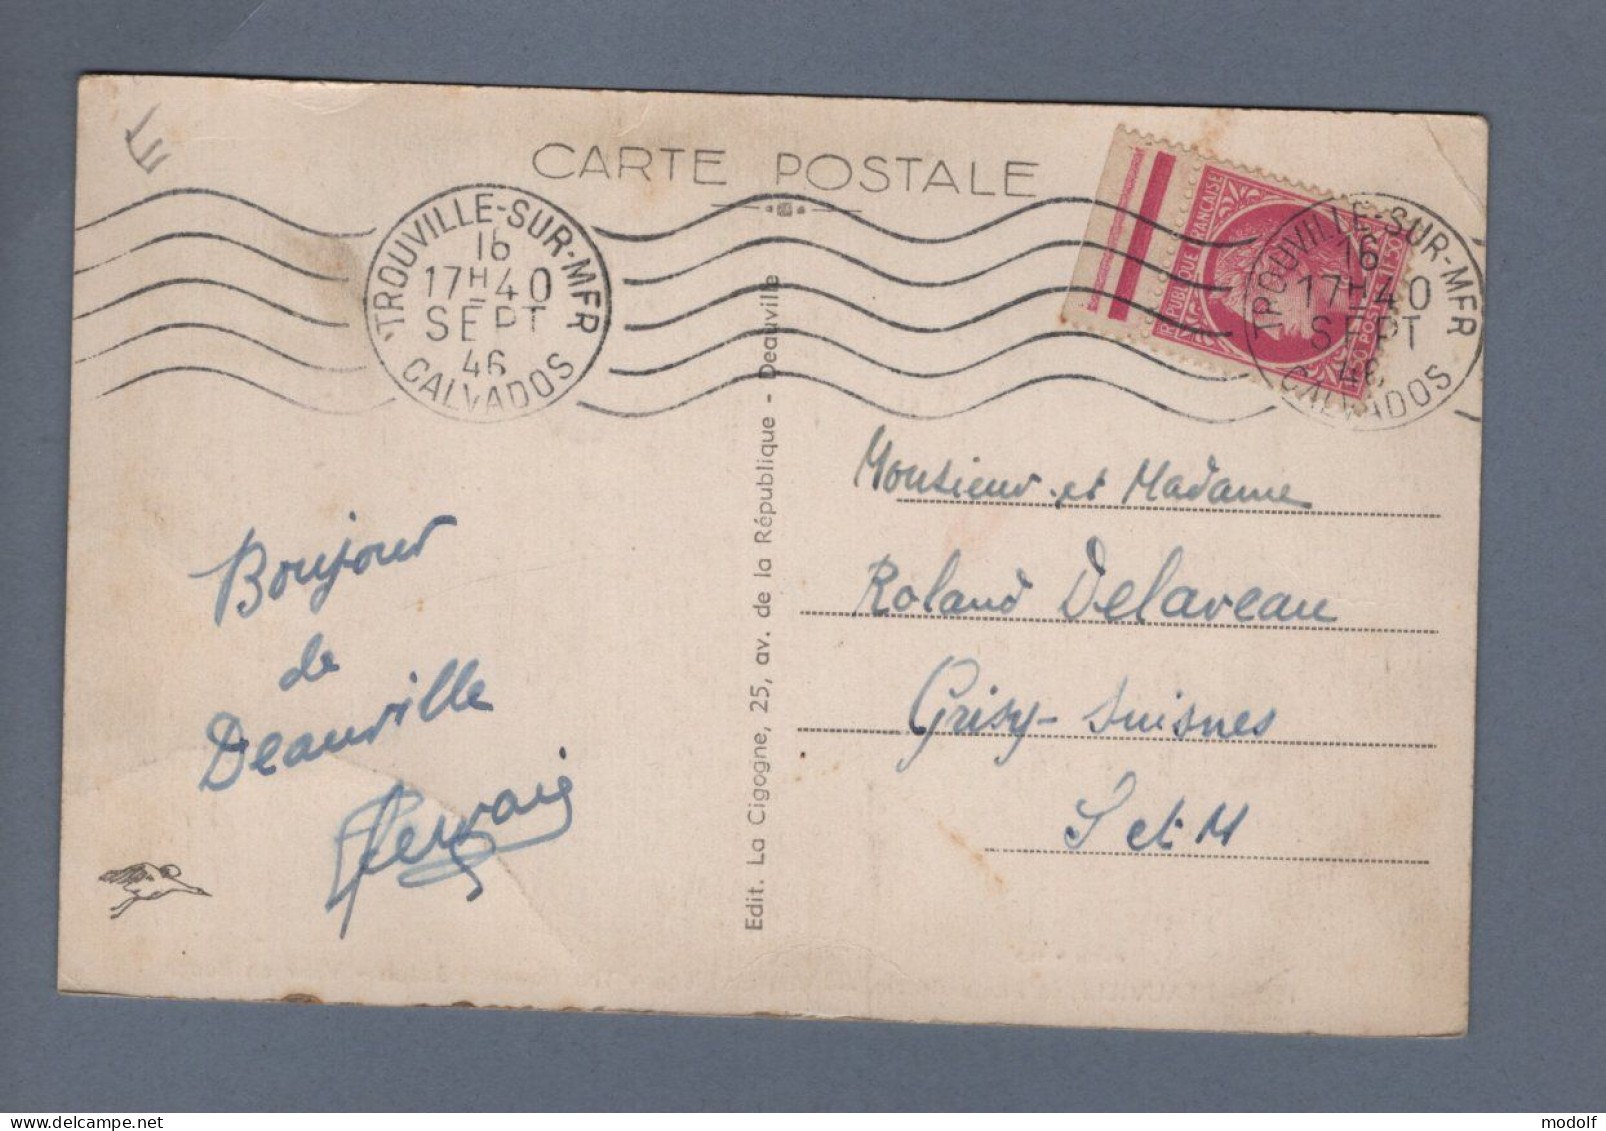 CARTE POSTALE
TROUVILLE-SUR-MER
16
17H40
SEPT
46
CALVADOS
REPUBLIQUE FRANÇAISE
1F50 POSTES 1F50
TROUVILLE-SUR-MER
16
17H40
SEPT
46
CALVADOS
Bonjour
de
Deauville
Gervais
Edit. La Cigogne, 25, av. de la République - Deauville
Monsieur et Madame
Roland Delaveau
Grisy-Suisnes
S et M
modolf